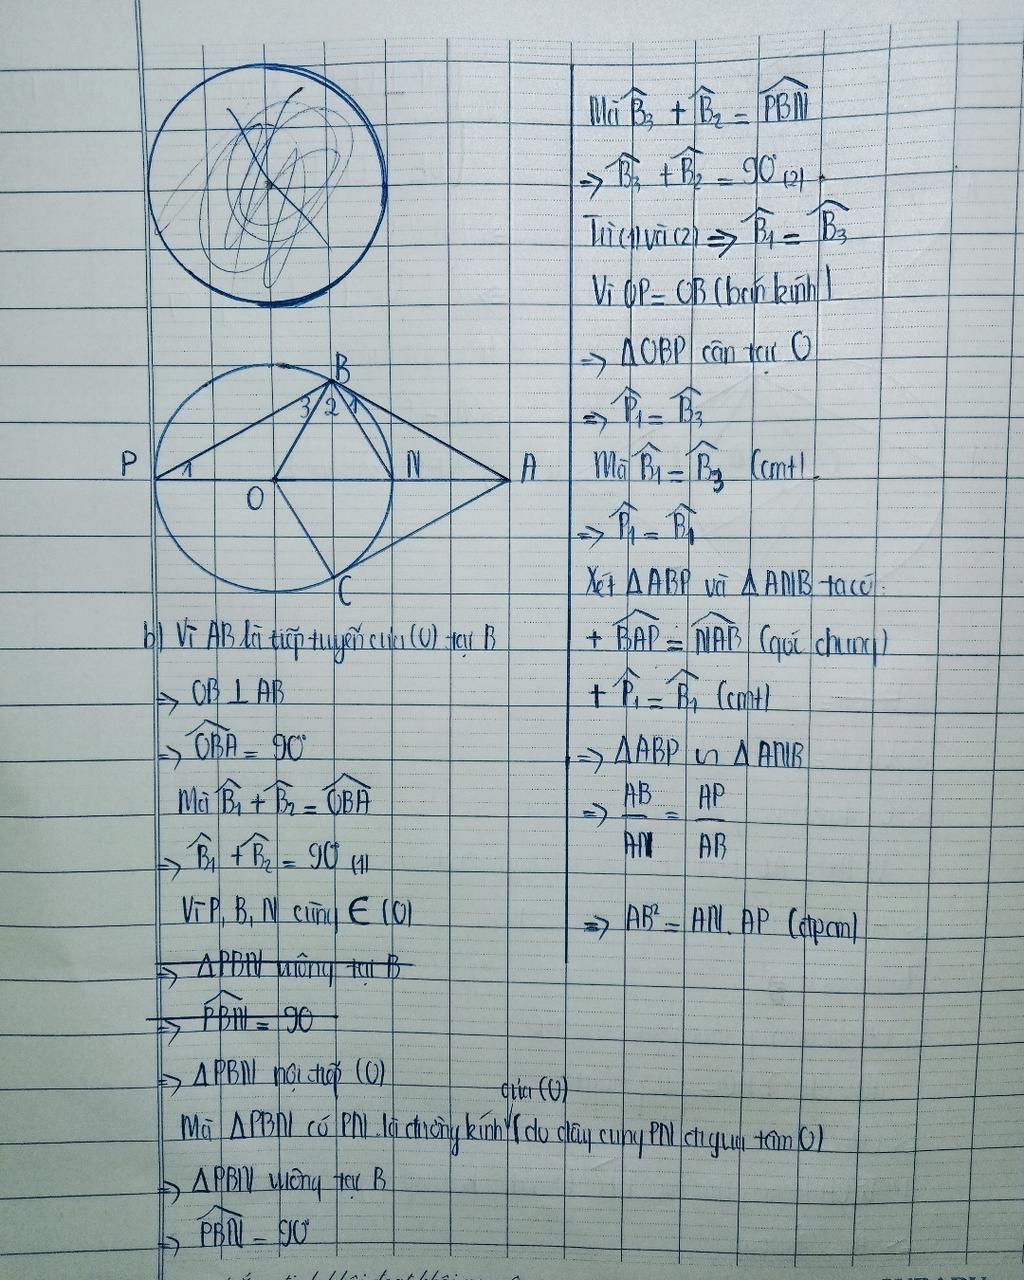 B
3 2 1
P 1 N A
O
C
b) Vì AB là tiếp tuyến của (O) tại B
=> OB ⊥ AB
=> \widehat{OBA} = 90°
Mà \widehat{B}₁ + \widehat{B}₂ = \widehat{OBA}
=> \widehat{B}₁ + \widehat{B}₂ = 90° (1)
Vì P, B, N cùng ∈ (O)
=> ΔPBN vuông tại B
=> \widehat{PBN} = 90
=> ΔPBN nội tiếp (O)
của (O)
Mà ΔPBN có PN là đường kính (do dây cung PN đi qua tâm O)
=> ΔPBN vuông tại B
=> \widehat{PBN} = 90°
Mà \widehat{B}₃ + \widehat{B}₂ = \widehat{PBN}
=> \widehat{B}₃ + \widehat{B}₂ = 90° (2)
Từ (1) và (2) => \widehat{B}₁ = \widehat{B}₃
Vì OP = OB (bán kính)
=> ΔOBP cân tại O
=> \widehat{P}₁ = \widehat{B}₃
Mà \widehat{B}₁ = \widehat{B}₃ (cmt)
=> \widehat{P}₁ = \widehat{B}₁
Xét ΔABP và ΔANB ta có:
+ \widehat{BAP} = \widehat{NAB} (góc chung)
+ \widehat{P}₁ = \widehat{B}₁ (cmt)
=> ΔABP ∽ ΔANB
=> AB/AN = AP/AB
=> AB² = AN. AP (đpcm)